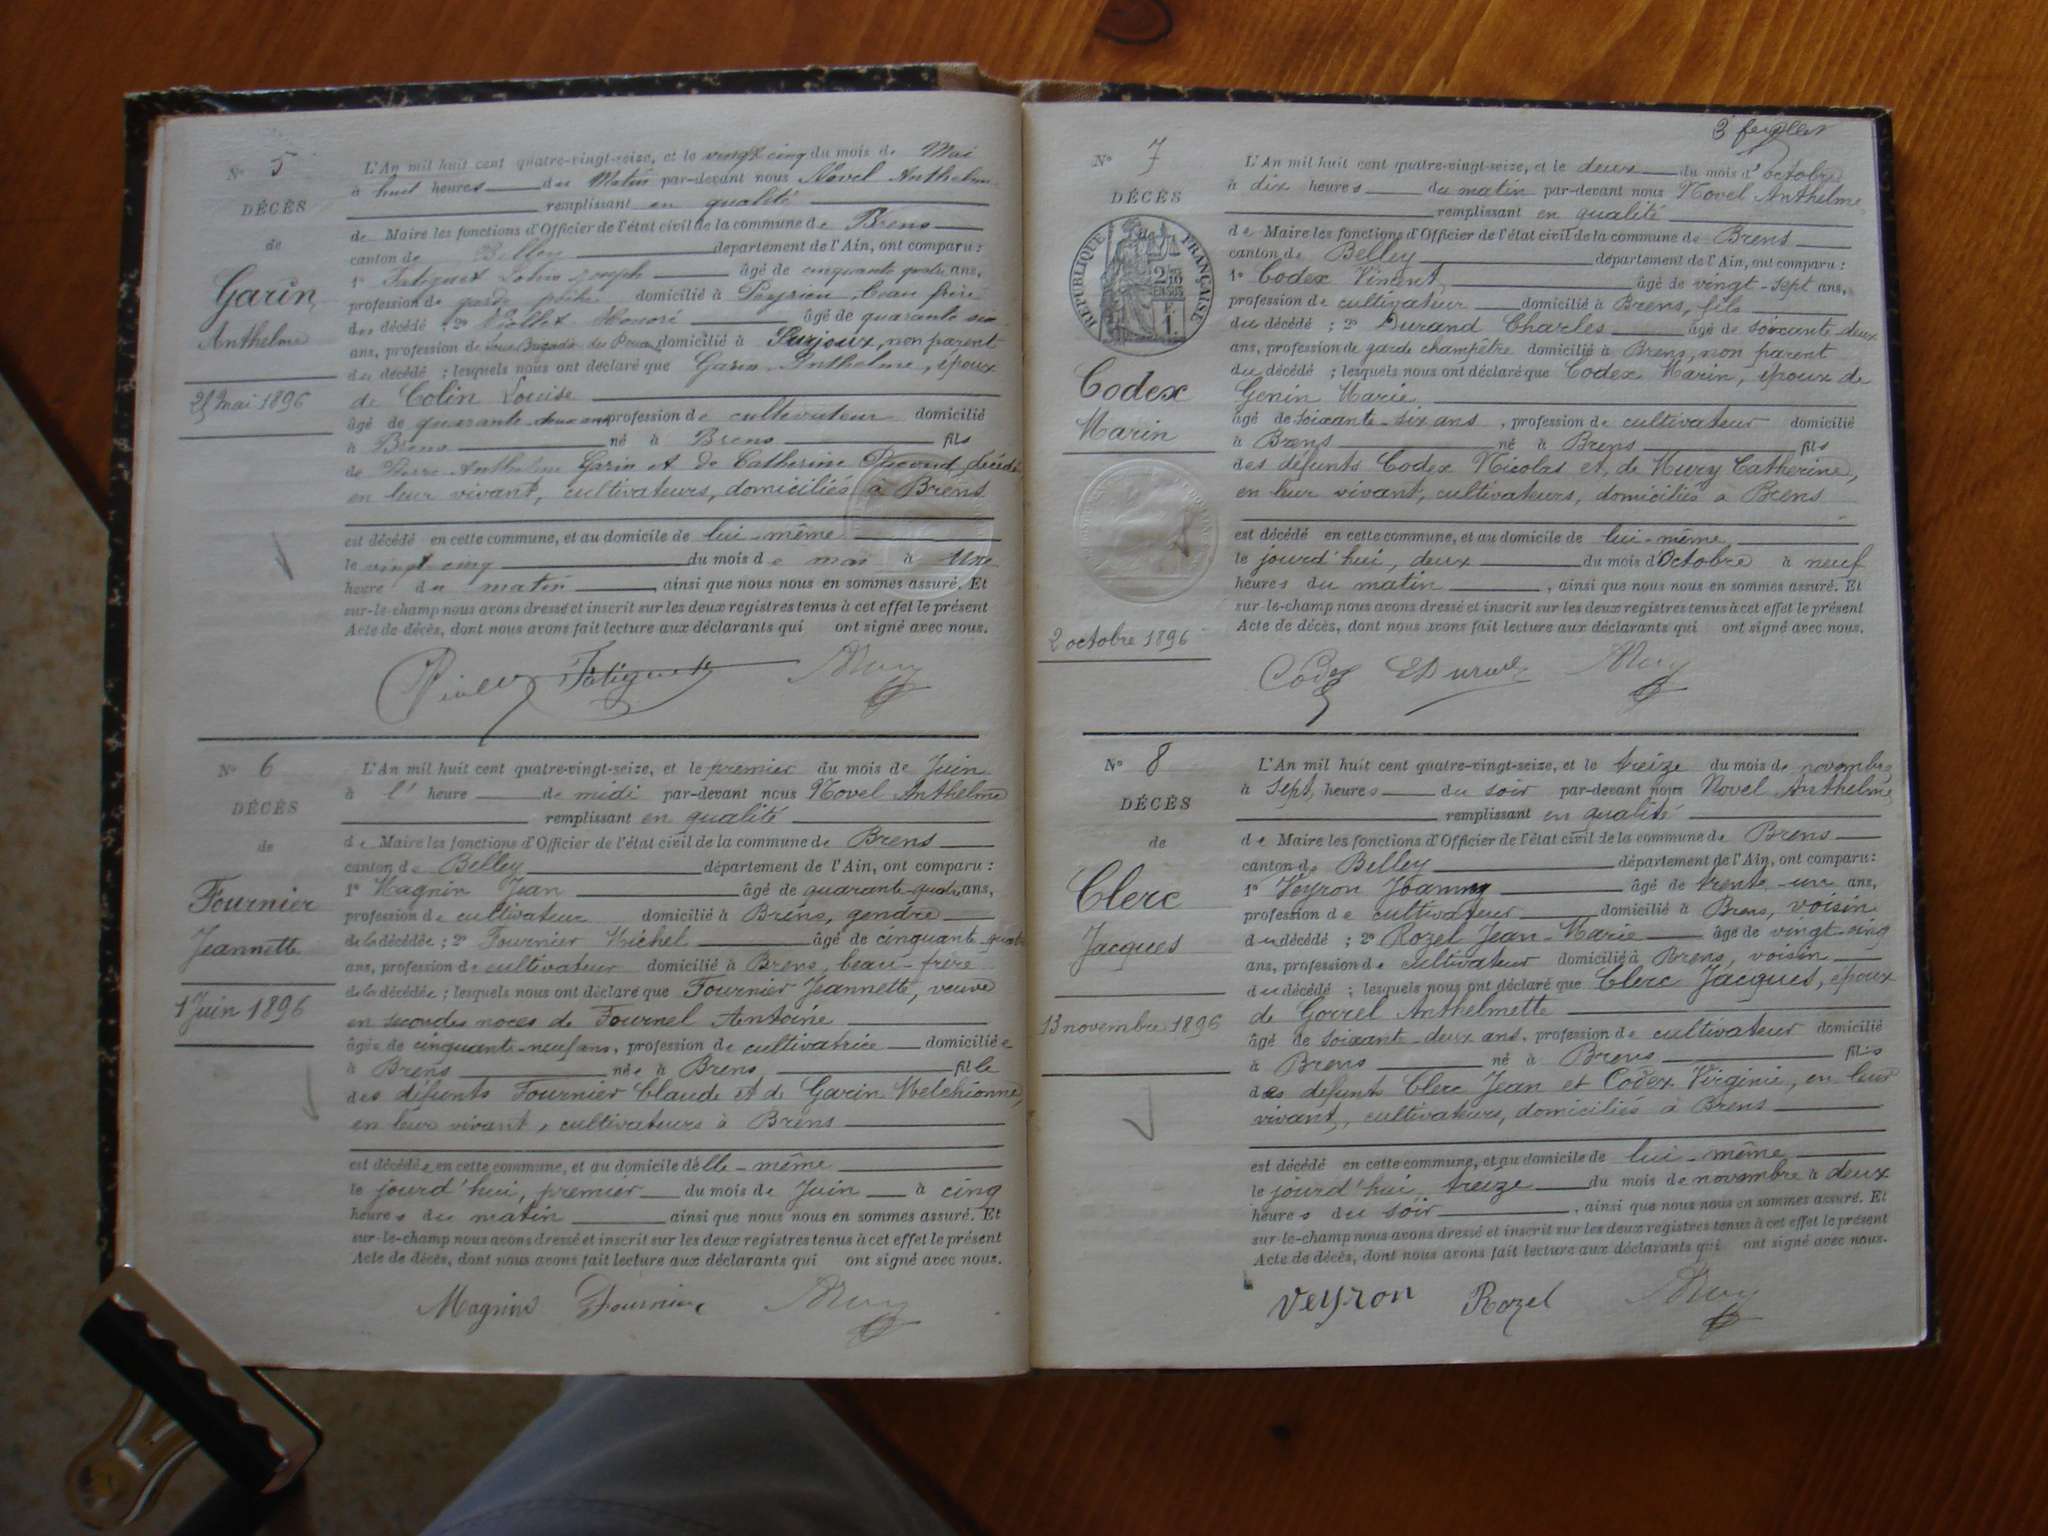 N° 5
DÉCÈS
de
Garin
Anthelme
25 Mai 1896
L'An mil huit cent quatre-vingt-seize, et le vingt cinq du mois de Mai
à huit heures du Matin par-devant nous Novel Anthelme
remplissant en qualité
de Maire les fonctions d'Officier de l'état civil de la commune de Brens
canton de Belley département de l'Ain, ont comparu :
1° Fatiguet Joseph âgé de cinquante quatre ans,
profession de garde domicilié à Peyrieu, beau frère
du décédé ; 2° Viollet Honoré âgé de quarante six
ans, profession de domicilié à Surjoux, non parent
du décédé ; lesquels nous ont déclaré que Garin Anthelme, époux
de Colin Louise
âgé de quarante deux ans profession de cultivateur domicilié
à Brens né à Brens fils
de Pierre Anthelme Garin et de Catherine décédés
en leur vivant, cultivateurs, domiciliés à Brens
est décédé en cette commune, et au domicile de lui-même
le vingt cinq du mois de mai à Une
heure du matin, ainsi que nous nous en sommes assuré. Et
sur-le-champ nous avons dressé et inscrit sur les deux registres tenus à cet effet le présent
Acte de décès, dont nous avons fait lecture aux déclarants qui ont signé avec nous.
Fatiguet
N° 6
DÉCÈS
de
Fournier
Jeannette
1 Juin 1896
L'An mil huit cent quatre-vingt-seize, et le premier du mois de Juin
à l' heure de midi par-devant nous Novel Anthelme
remplissant en qualité
de Maire les fonctions d'Officier de l'état civil de la commune de Brens
canton de Belley département de l'Ain, ont comparu :
1° Magnin Jean âgé de quarante-quatre ans,
profession de cultivateur domicilié à Brens, gendre
de la décédée ; 2° Fournier Michel âgé de cinquante-quatre
ans, profession de cultivateur domicilié à Brens, beau-frère
de la décédée ; lesquels nous ont déclaré que Fournier Jeannette, veuve
en secondes noces de Fournel Antoine
âgée de cinquante-neuf ans, profession de cultivatrice domiciliée
à Brens née à Brens fille
des défunts Fournier Claude et de Garin Melchionne,
en leur vivant, cultivateurs à Brens
est décédée en cette commune, et au domicile d'elle-même
le jourd'hui, premier du mois de Juin à cinq
heures du matin ainsi que nous nous en sommes assuré. Et
sur-le-champ nous avons dressé et inscrit sur les deux registres tenus à cet effet le présent
Acte de décès, dont nous avons fait lecture aux déclarants qui ont signé avec nous.
Magnin Fournier
3 feuillet
N° 7
DÉCÈS
de
RÉPUBLIQUE FRANÇAISE
Codex
Marin
2 octobre 1896
L'An mil huit cent quatre-vingt-seize, et le deux du mois d'octobre
à dix heures du matin par-devant nous Novel Anthelme
remplissant en qualité
de Maire les fonctions d'Officier de l'état civil de la commune de Brens
canton de Belley département de l'Ain, ont comparu :
1° Codex Vincent, âgé de vingt-sept ans,
profession de cultivateur domicilié à Brens, fils
du décédé ; 2° Durand Charles âgé de soixante deux
ans, profession de garde champêtre domicilié à Brens, non parent
du décédé ; lesquels nous ont déclaré que Codex Marin, époux de
Genin Marie
âgé de soixante-six ans, profession de cultivateur domicilié
à Brens né à Brens fils
des défunts Codex Nicolas et de Mury Catherine,
en leur vivant, cultivateurs, domiciliés à Brens
est décédé en cette commune, et au domicile de lui-même
le jourd'hui, deux du mois d'Octobre à neuf
heures du matin, ainsi que nous nous en sommes assuré. Et
sur-le-champ nous avons dressé et inscrit sur les deux registres tenus à cet effet le présent
Acte de décès, dont nous avons fait lecture aux déclarants qui ont signé avec nous.
Codex Durand
N° 8
DÉCÈS
de
Clerc
Jacques
13 novembre 1896
L'An mil huit cent quatre-vingt-seize, et le treize du mois de novembre
à Sept heures du soir par-devant nous Novel Anthelme
remplissant en qualité
de Maire les fonctions d'Officier de l'état civil de la commune de Brens
canton de Belley département de l'Ain, ont comparu :
1° Veyron Joanny âgé de trente-un ans,
profession de cultivateur domicilié à Brens, voisin
du décédé ; 2° Rozel Jean-Marie âgé de vingt-cinq
ans, profession de cultivateur domicilié à Brens, voisin
du décédé ; lesquels nous ont déclaré que Clerc Jacques, époux
de Gorrel Anthelmette
âgé de soixante-deux ans, profession de cultivateur domicilié
à Brens né à Brens fils
des défunts Clerc Jean et Codex Virginie, en leur
vivant, cultivateurs, domiciliés à Brens
est décédé en cette commune, et au domicile de lui-même
le jourd'hui treize du mois de novembre à deux
heures du soir, ainsi que nous nous en sommes assuré. Et
sur-le-champ nous avons dressé et inscrit sur les deux registres tenus à cet effet le présent
Acte de décès, dont nous avons fait lecture aux déclarants qui ont signé avec nous.
Veyron Rozel